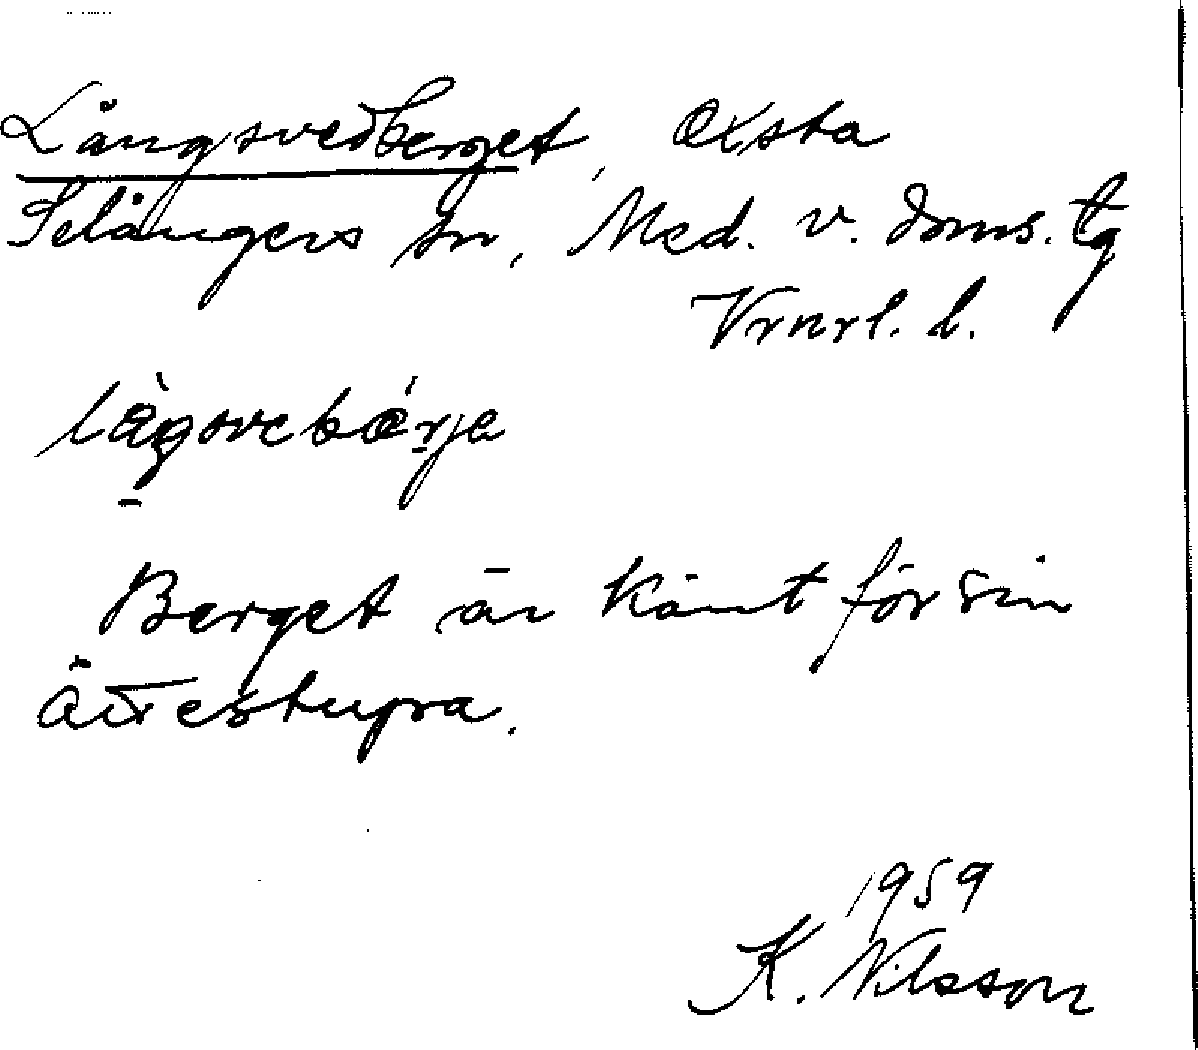 Långsvedberget, Oxsta
Selångers sn, Med. v. doms. tg
Vrnrl. l.
Berget är känt för sin
Ättestupa.
1959
K. Nilsson